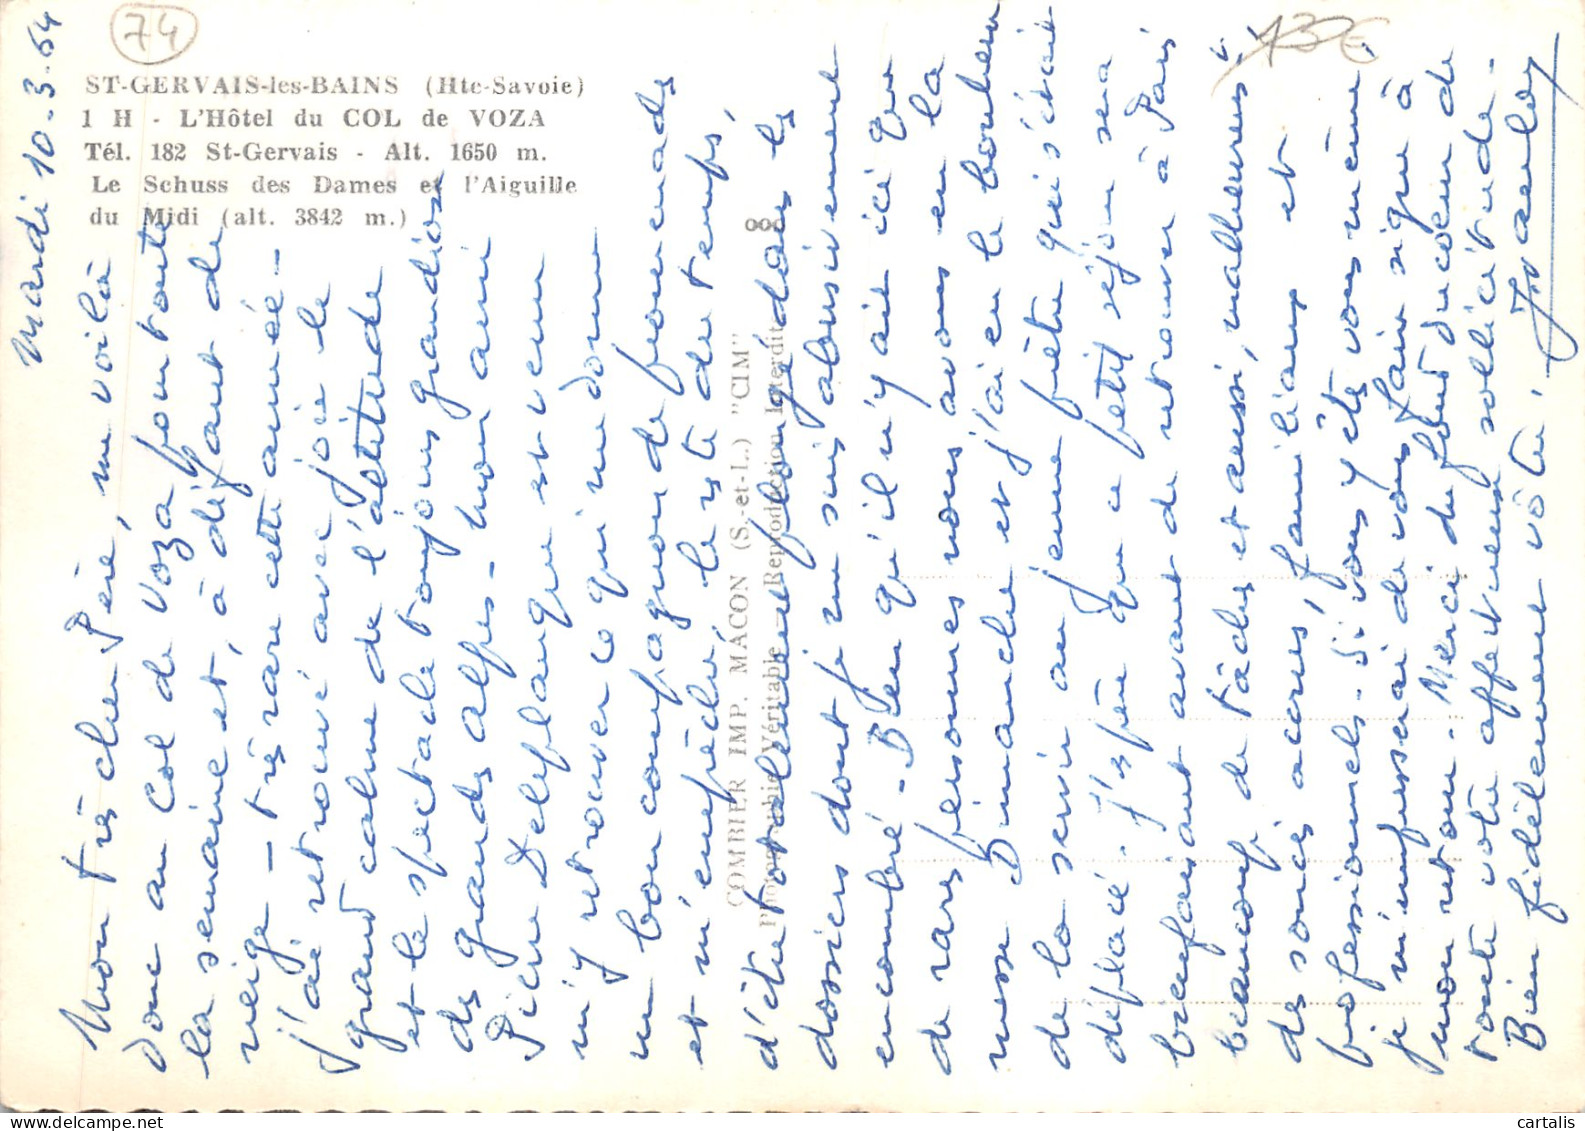 74
13€
ST-GERVAIS-les-BAINS (Hte-Savoie)
1 H - L'Hôtel du COL de VOZA
Tél. 182 St-Gervais - Alt. 1650 m.
Le Schuss des Dames et l'Aiguille
du Midi (alt. 3842 m.)
COMBIER IMP. MACON (S.-et-L.) "CIM"
Photographie Véritable - Reproduction Interdite
Mardi 10-3-64
Mon très cher Père, me voilà
donc au Col de Voza pour toute
la semaine et, à défaut de
neige - très rare cette année -
j'ai retrouvé avec joie le
grand calme de l'altitude
et le spectacle toujours grandiose
des grandes alpes - mon ami
Pierre Delflanque est venu
m'y retrouver ce qui me donne
un bon compagnon de promenades
et m'empêche, le reste du temps,
d'être totalement plongé dans les
dossiers dont je me suis abusivement
encombré - Bien qu'il n'y ait ici que
de rares personnes nous avons eu la
messe Dimanche et j'ai eu le bonheur
de la servir au jeune prêtre qui s'était
déplacé. J'espère que ce petit séjour sera
bienfaisant avant de retrouver à Paris
beaucoup de tâches et aussi, malheureus.t,
des soucis accrus, familiaux et
professionnels - Si vous y êtes vous même,
je m'empresserai de vous faire signe à
mon retour. Merci du fond du coeur de
toute votre affectueuse sollicitude -
Bien fidèlement vôtre.